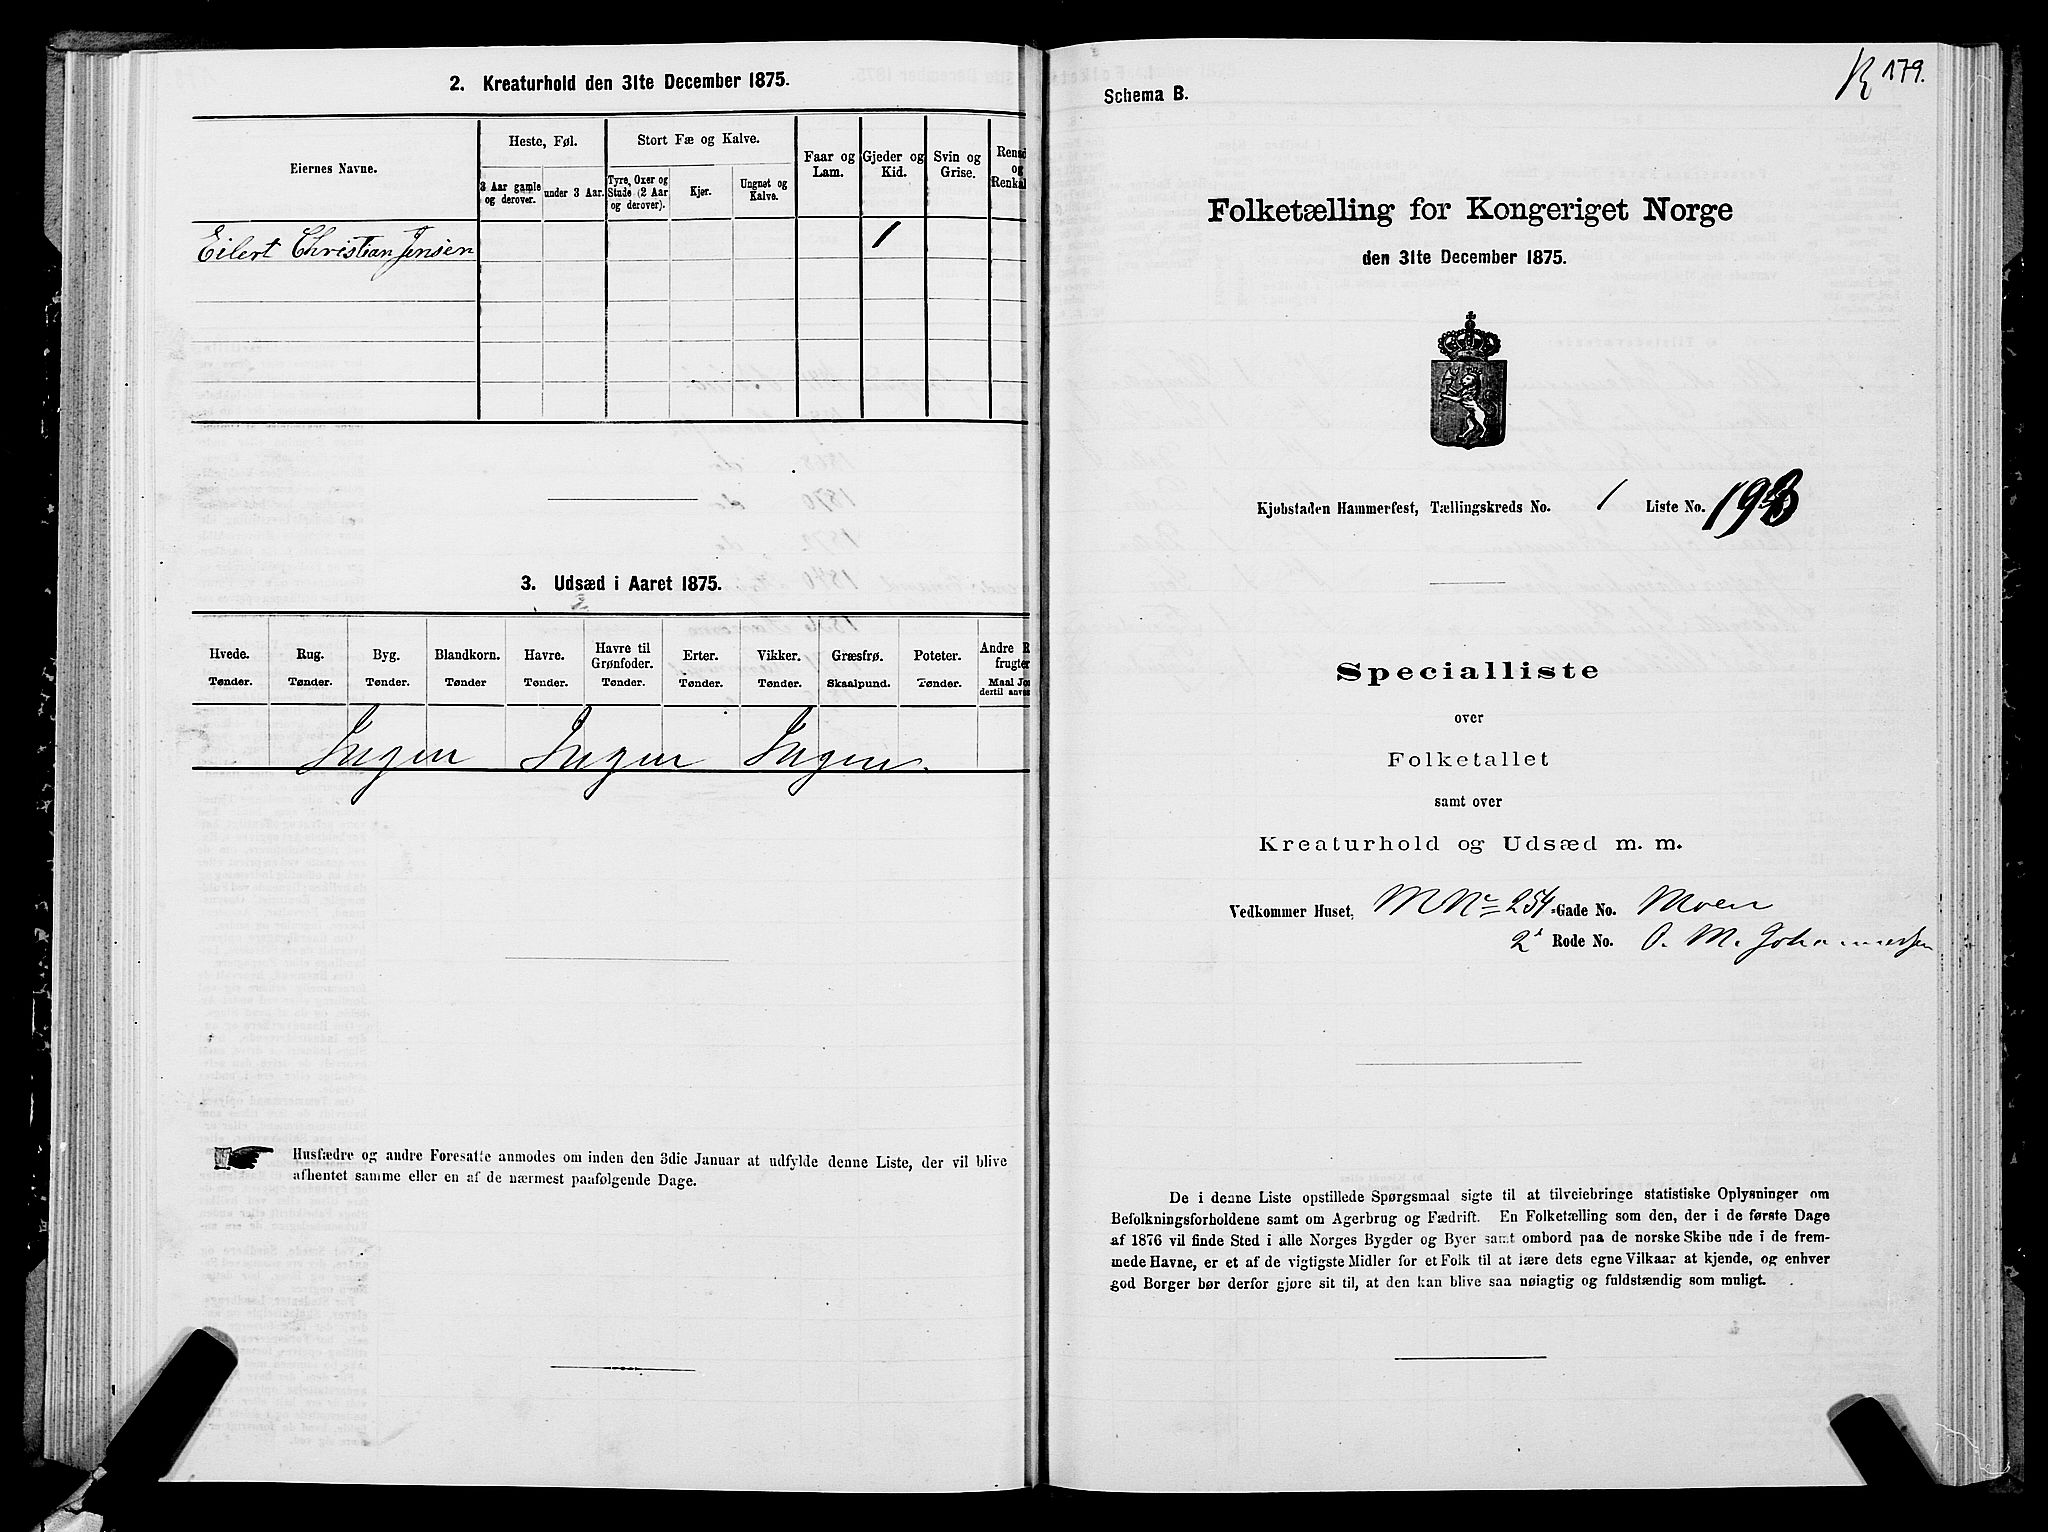 2. Kreaturhold den 31te December 1875.
Eiernes Navne.
Heste, Føl.
Stort Fæ og Kalve.
Faar og Lam.
Gjeder og Kid.
Svin og Grise.
Rensd
og
Renkal
3 Aar gamle og derover.
under 3 Aar.
Tyre, Oxer og Stude (2 Aar og derover).
Kjør.
Ungnøt og Kalve.
Eilert Christian Jensen 1
3. Udsæd i Aaret 1875.
Hvede. Rug. Byg. Blandkorn. Havre. Havre til Grønfoder. Erter. Vikker. Græsfrø. Poteter. Andre R
frugter
Tønder. Tønder. Tønder. Tønder Tønder. Tønder. Tønder. Tønder. Skaalpund. Tønder. Maal Jor
dertil anve
Ingen Ingen Ingen.
Husfædre og andre Foresatte anmodes om inden den 3die Januar at udfylde denne Liste, der vil blive
afhentet samme eller en af de nærmest paafølgende Dage.
R 179.
Schema B.
Folketælling for Kongeriget Norge
den 31te December 1875.
Kjøbstaden Hammerfest, Tællingskreds No. 1 Liste No.
Specialliste
over
Folketallet
samt over
Kreaturhold og Udsæd m. m.
Vedkommer Huset, MNr 254 -Gade No. Moen
2 Rode No. O. M. Johannessen
De i denne Liste opstillede Spørgsmaal sigte til at tilveiebringe statistiske Oplysninger om
Befolkningsforholdene samt om Agerbrug og Fædrift. En Folketælling som den, der i de første Dage
af 1876 vil finde Sted i alle Norges Bygder og Byer samt ombord paa de norske Skibe ude i de frem-
mede Havne, er et af de vigtigste Midler for et Folk til at lære dets egne Vilkaar at kjende, og enhver
god Borger bør derfor gjøre sit til, at den kan blive saa nøiagtig og fuldstændig som muligt.